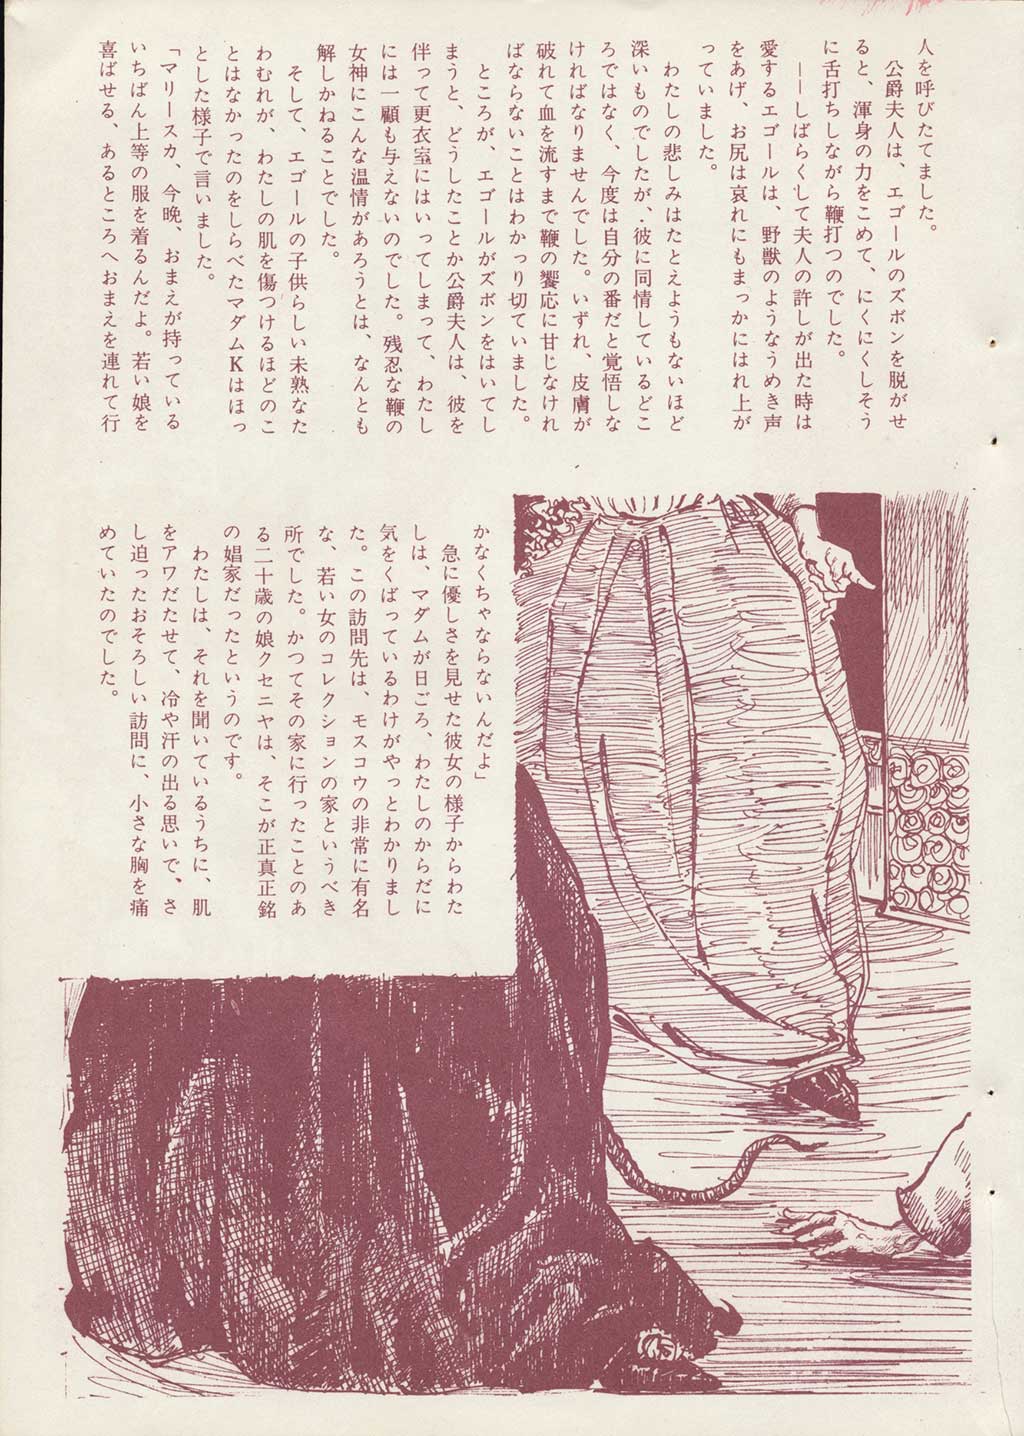 人を呼びたてました。
　公爵夫人は、エゴールのズボンを脱がせ
ると、渾身の力をこめて、にくにくしそう
に舌打ちしながら鞭打つのでした。
　――しばらくして夫人の許しが出た時は
愛するエゴールは、野獣のようなうめき声
をあげ、お尻は哀れにもまっかにはれ上が
っていました。
　わたしの悲しみはたとえようもないほど
深いものでしたが、彼に同情しているどこ
ろではなく、今度は自分の番だと覚悟しな
ければなりませんでした。いずれ、皮膚が
破れて血を流すまで鞭の饗応に甘じなけれ
ばならないことはわかっり切ていました。
　ところが、エゴールがズボンをはいてし
まうと、どうしたことか公爵夫人は、彼を
伴って更衣室にはいってしまって、わたし
には一顧も与えないのでした。残忍な鞭の
女神にこんな温情があろうとは、なんとも
解しかねることでした。
　そして、エゴールの子供らしい未熟なた
わむれが、わたしの肌を傷つけるほどのこ
とはなかったのをしらべたマダムKはほっ
とした様子で言いました。
「マリースカ、今晩、おまえが持っている
いちばん上等の服を着るんだよ。若い娘を
喜ばせる、あるところへおまえを連れて行
かなくちゃならないんだよ」
　急に優しさを見せた彼女の様子からわた
しは、マダムが日ごろ、わたしのからだに
気をくばっているわけがやっとわかりまし
た。この訪問先は、モスコウの非常に有名
な、若い女のコレクションの家というべき
所でした。かつてその家に行ったことのあ
る二十歳の娘クセニヤは、そこが正真正銘
の娼家だったというのです。
　わたしは、それを聞いているうちに、肌
をアワだたせて、冷や汗の出る思いで、さ
し迫ったおそろしい訪問に、小さな胸を痛
めていたのでした。